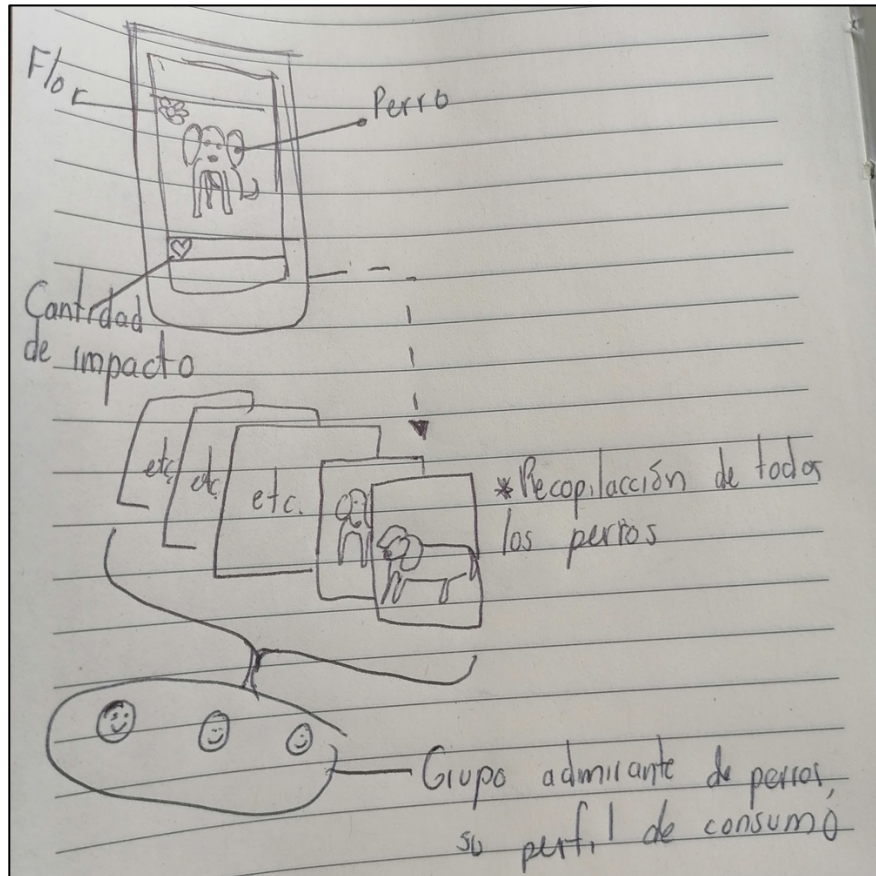 Flor
Perro
Cantidad
de impacto
etc.
etc.
etc.
*Recopilacción de todos
los perros
Grupo admirante de perros,
su perfil de consumó